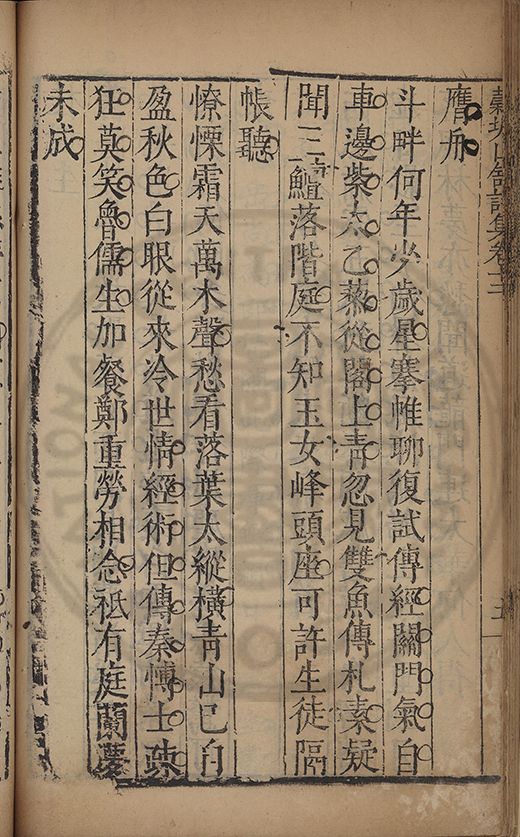 山館詩集卷
五
膺舟
斗畔何年少歲星搴帷聊復試傳經關門氣自
車邊紫太乙藜從閣上青忽見雙魚傳札素疑
聞三鱣落階庭不知玉女峰頭座可許生徒隔
帳聽
憭慄霜天萬木聲愁看落葉太縱橫青山已自
盈秋色白眼從來冷世情經術但傳秦愽士疎
狂莫笑魯儒生加餐鄭重勞相念祇有庭蘭夢
未成